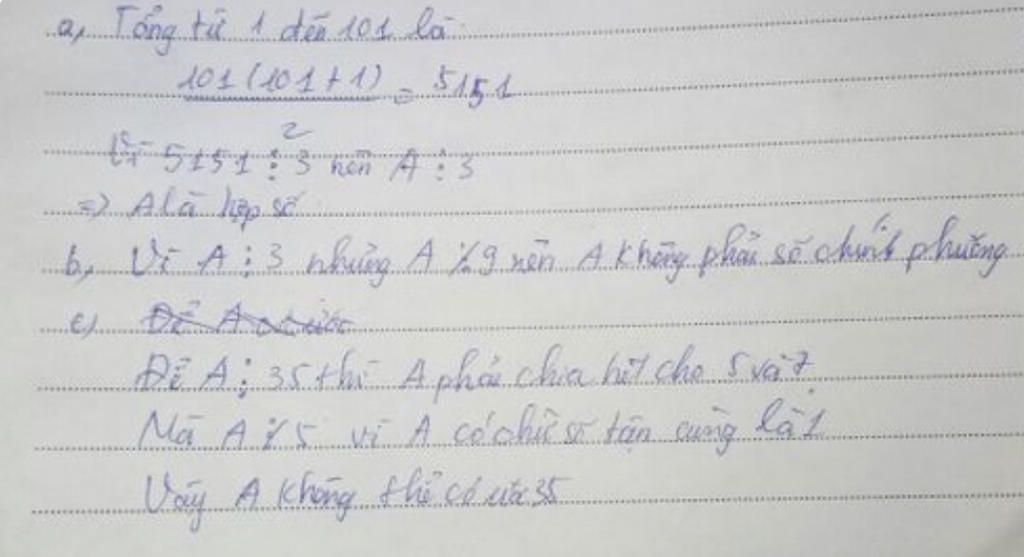 a, Tổng từ 1 đến 101 là
101(101+1) = 5151
2
Vì 5151 ⋮ 3 nên A ⋮ 3
=> A là hợp số
b, Vì A ⋮ 3 nhưng A ⋮̸ 9 nên A không phải số chính phương
c) Để A
Để A ⋮ 35 thì A phải chia hết cho 5 và 7
Mà A ⋮̸ 5 vì A có chữ số tận cùng là 1
Vậy A không thể có ước 35